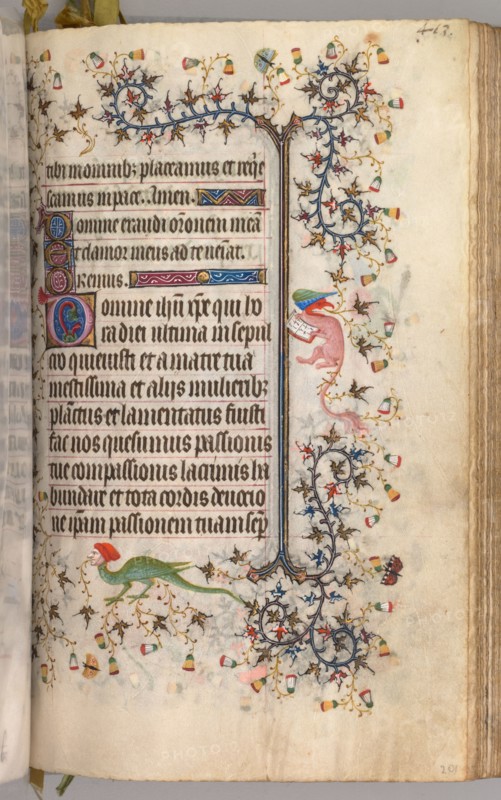 413.
tibi in omnibz placeamus et req̃e
scamus in pace. Amen.
Domine exaudi or̃onem meã
Et clamor meus ad te ueniat.
Oremus.
Domine ih̃u xp̃e qui ho
ra diei ultima in sepul
cro quieuisti et a matre tua
mestissima et alijs mulieribz
plãctus et lamentatus fuisti
fac nos quesumus passionis
tue compassionis lacrimis ha
bundare et tota cordis deuocio
ne ip̃am passionem tuam sep̃